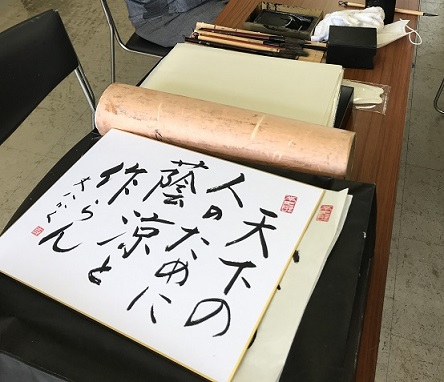 天下の
人のために
蔭凉と
作らん